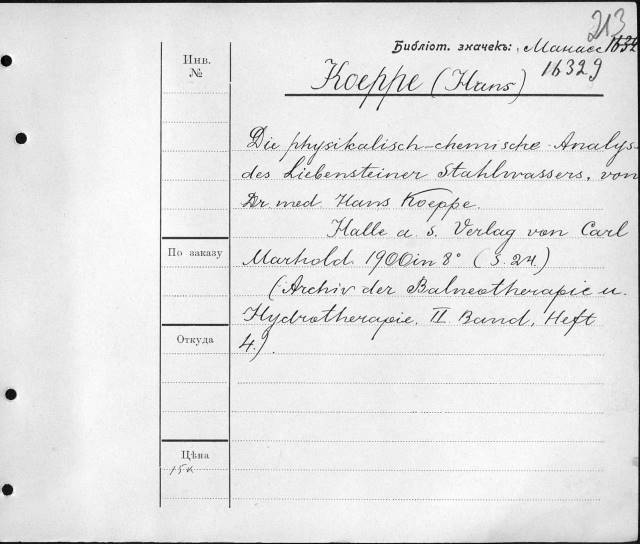 213
Библіот. значекъ: Манасс
16329
Инв.
№
Koeppe (Hans)
Die physikalisch-chemische Analys
des Liebensteiner Stahlwassers, von
Dr. med. Hans Koeppe.
Halle a. S. Verlag von Carl
По заказу
Marhold 1900 in 8° (S. 24.)
(Archiv der Balneotherapie u.
Hydrotherapie. II. Band, Heft
Откуда
4.)
Цѣна
15к